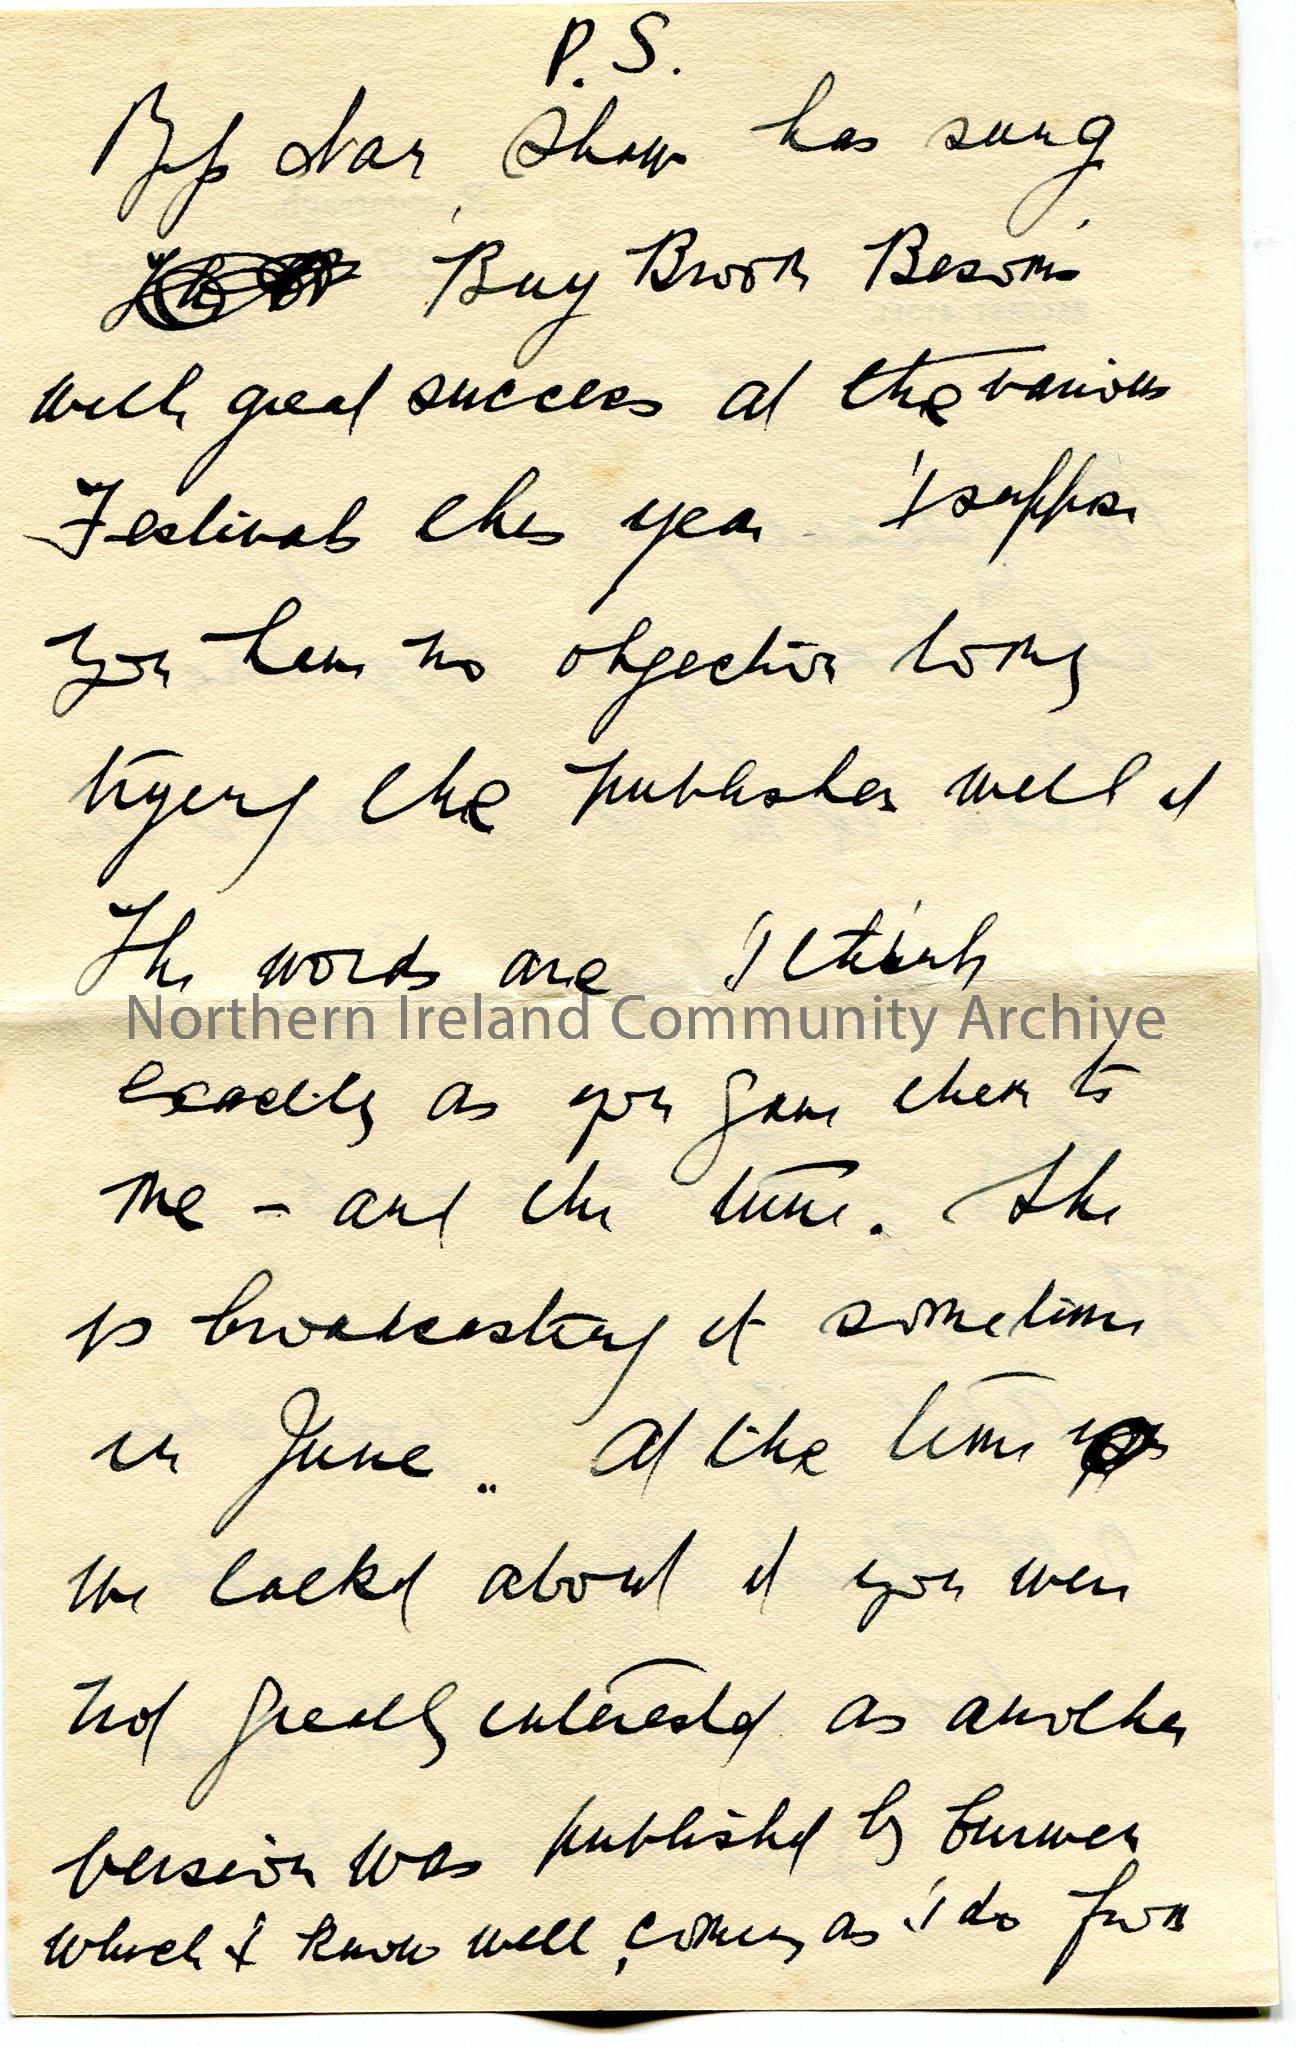 P.S.
Shaw has sung
'Buy Broom Besoms'
with great success at the various
Festivals this year - I suppose
you have no objection to my
trying the publisher with it
The words are I think
Northern Ireland Community Archive
exactly as you gave them to
me - and the tune. She
is broadcasting it sometime
in June .. At the time
we talked about it you were
not greatly interested as another
version was published by
which I know well, coming as I do from